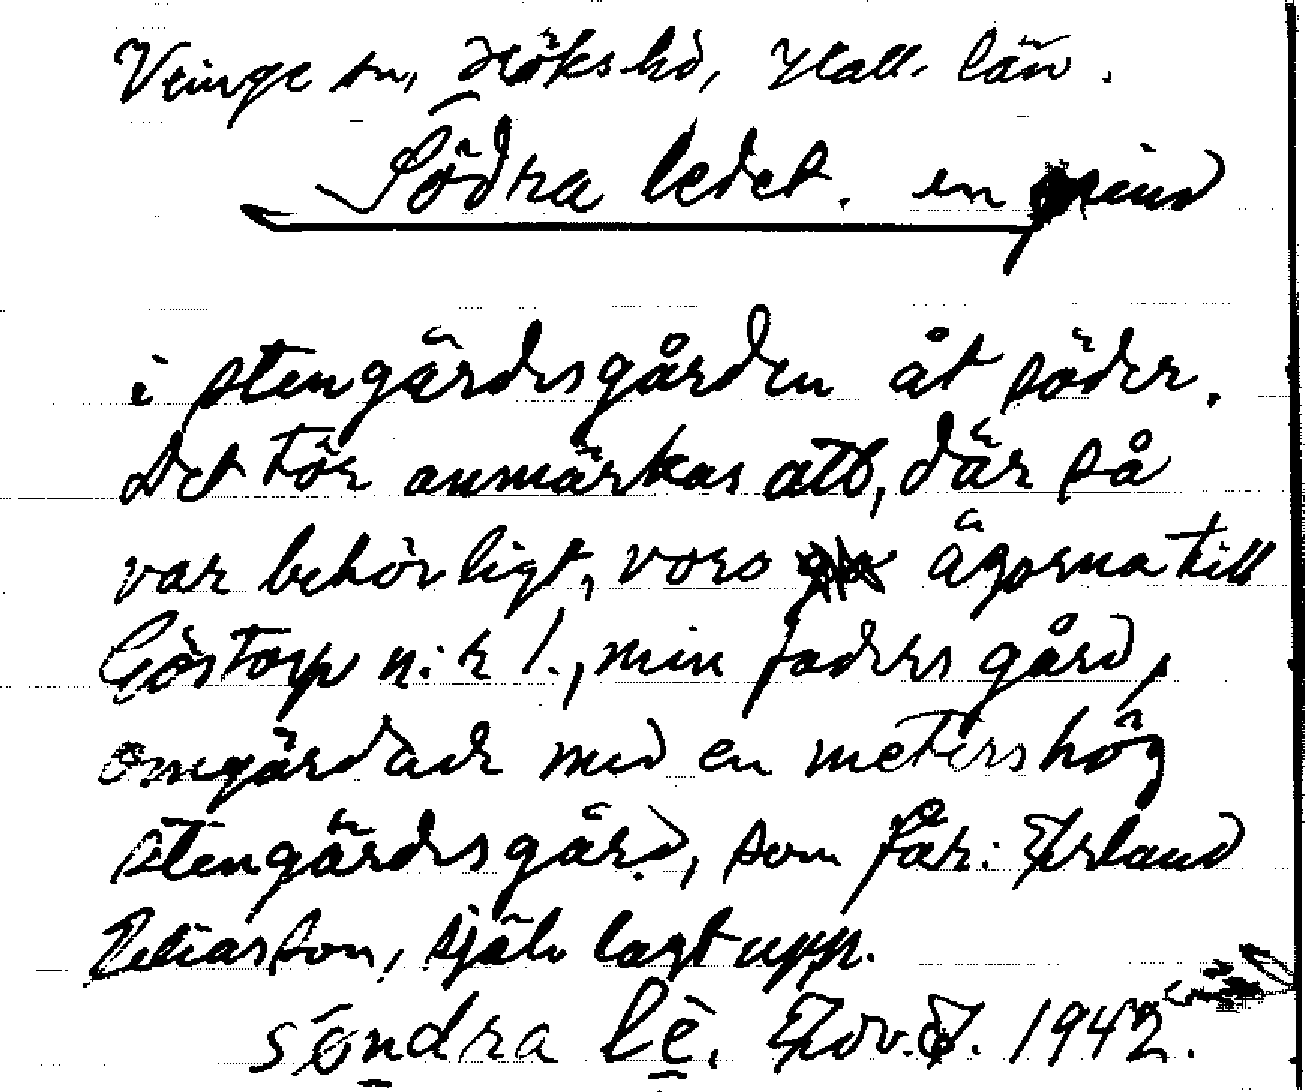 Veinge sn, Höks hd, Hall. län.
Södra ledet. en grind
i stengärdsgården åt söder.
Det tör anmärkas att, där så
var behövligt, voro ägorna till
Göstorp n:r 1., min faders gård,
omgärdade med en meters hög
stengärdsgård, som far: Erland
Eliasson, själv lagt upp.
söndra lè. 1942.